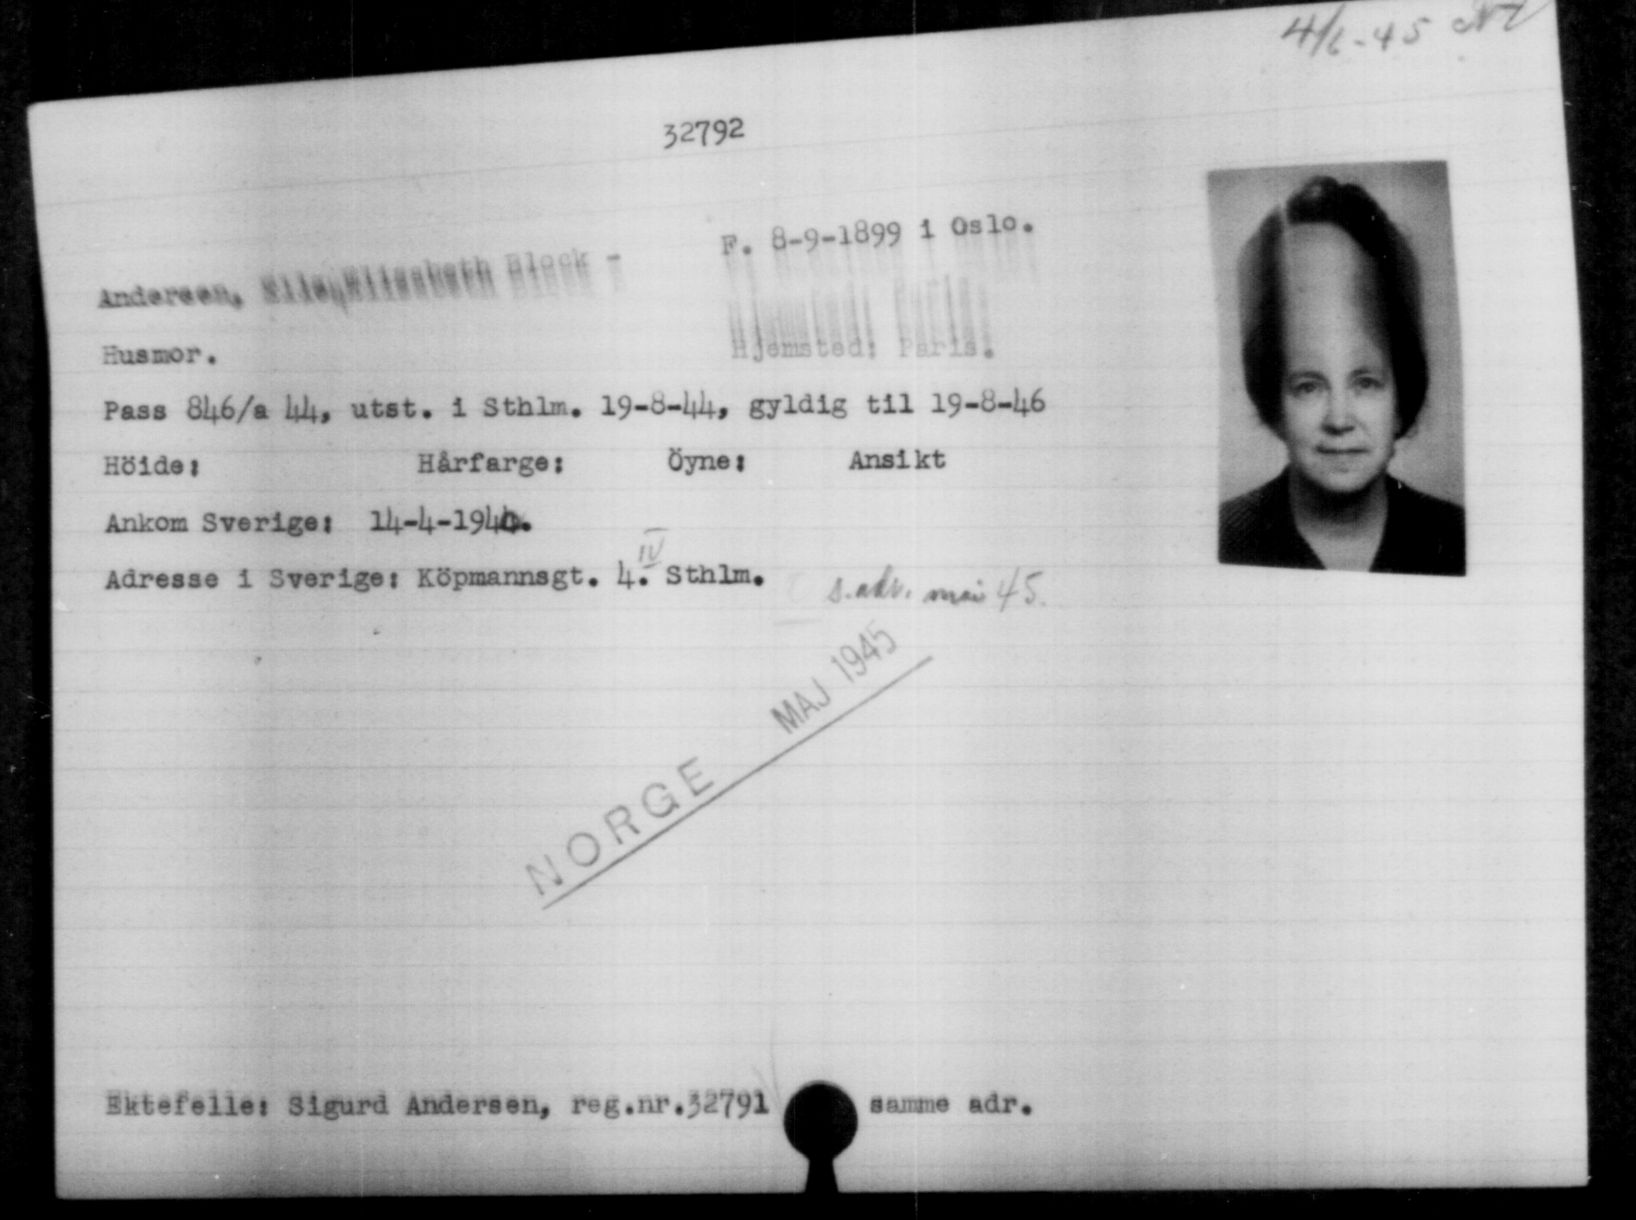 4/6-45
32792
F. 8-9-1899 i Oslo.
Andersen, Elisabeth Block -
Husmor.
Hjemsted: Paris.
Pass 846/a 44, utst. i Sthlm. 19-8-44, gyldig til 19-8-46
Höide: Hårfarge: Öyne: Ansikt
Ankom Sverige: 14-4-1940.
Adresse i Sverige: Köpmannsgt. 4. IV Sthlm. s.adr. mai 45.
NORGE MAJ 1945
Ektefelle: Sigurd Andersen, reg.nr.32791 samme adr.